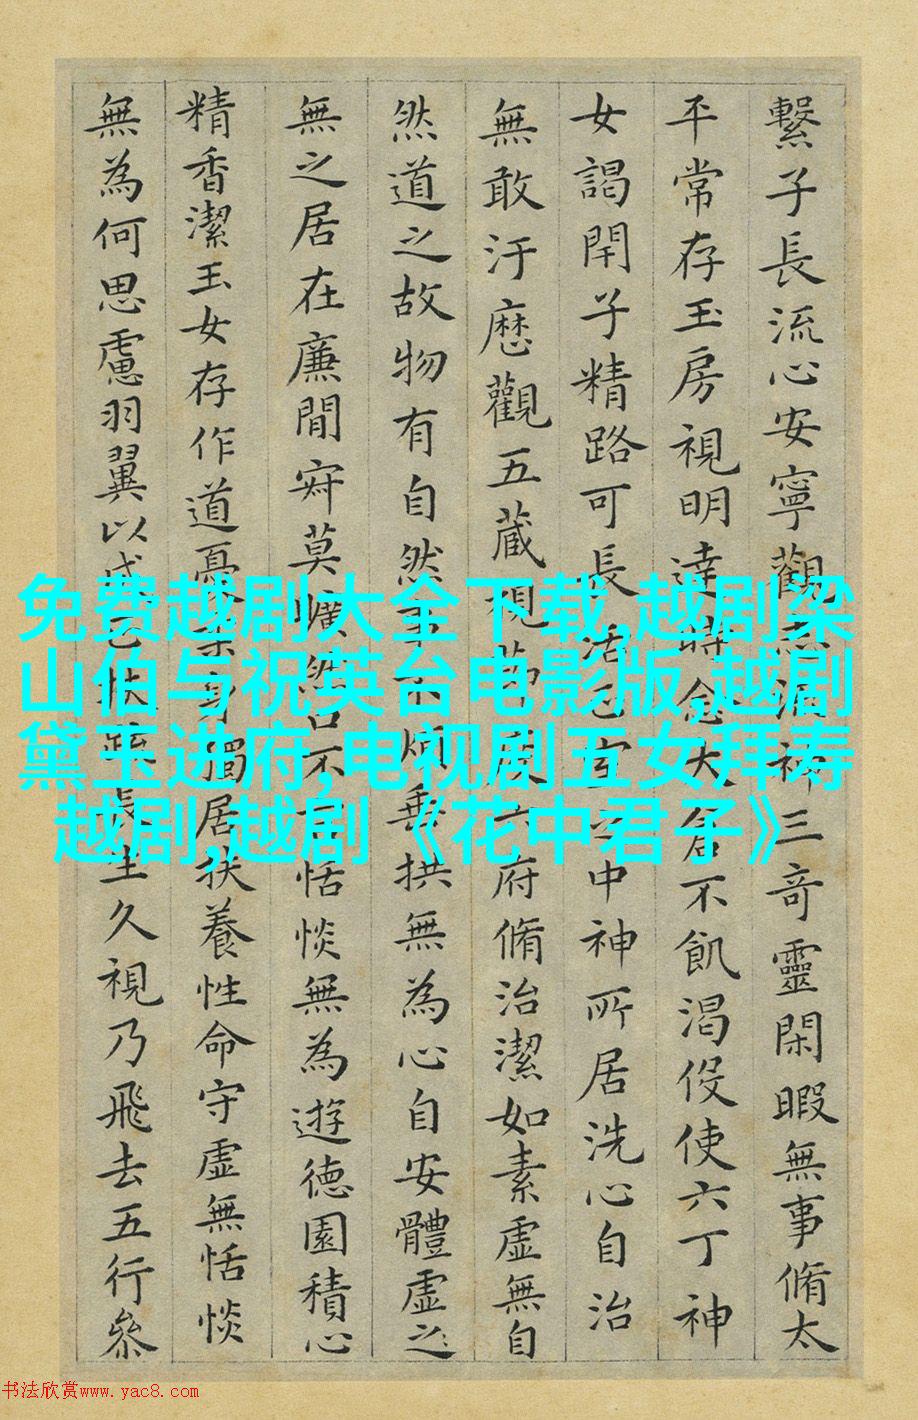 繫子長流心安寧觀志流神三奇靈閑暇無事脩太
平常存玉房視明達時念大倉不飢渴伇使六丁神
女謁閇子精路可長活中神所居洗心自治
無敢汙歷觀五藏視節度六府脩治潔如素虛無自
然道之故物有自然事不煩垂拱無為心自安體虛之
無之居在廉間寂莫曠然口不言恬惔無為遊德園積心
精香潔玉女存作道憂柔身獨居扶養性命守虛無恬惔
無為何思慮羽翼以成扶疏長生久視乃飛去五行參
免费越剧大全下载,越剧梁
山伯与祝英台电影版,越剧
黛玉进府,电视剧五女拜寿
越剧,越剧《花中君子》
书法欣赏www.yac8.com